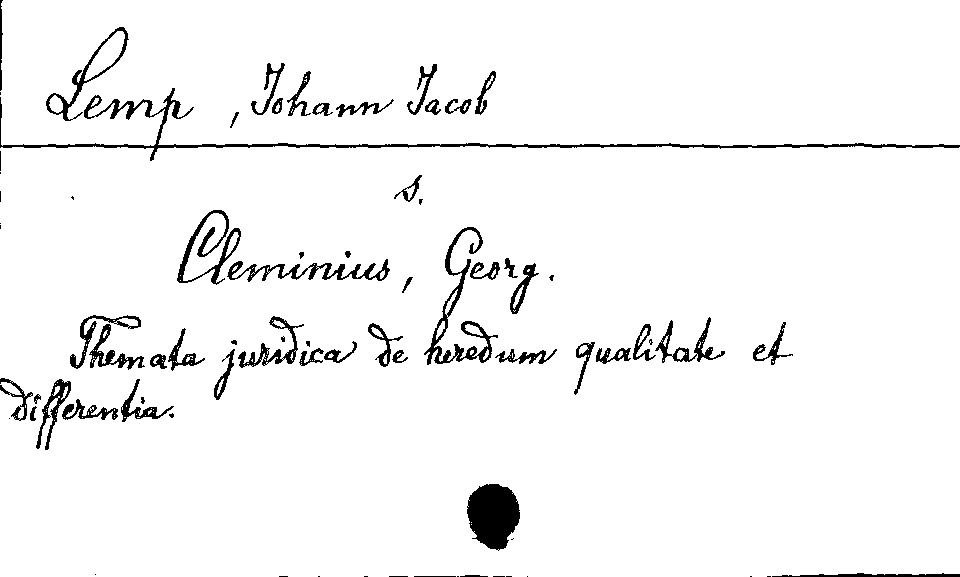 Lemp, Johann Jacob
s.
Cleminius, Georg.
Themata juridica de heredum qualitate et
differentia.